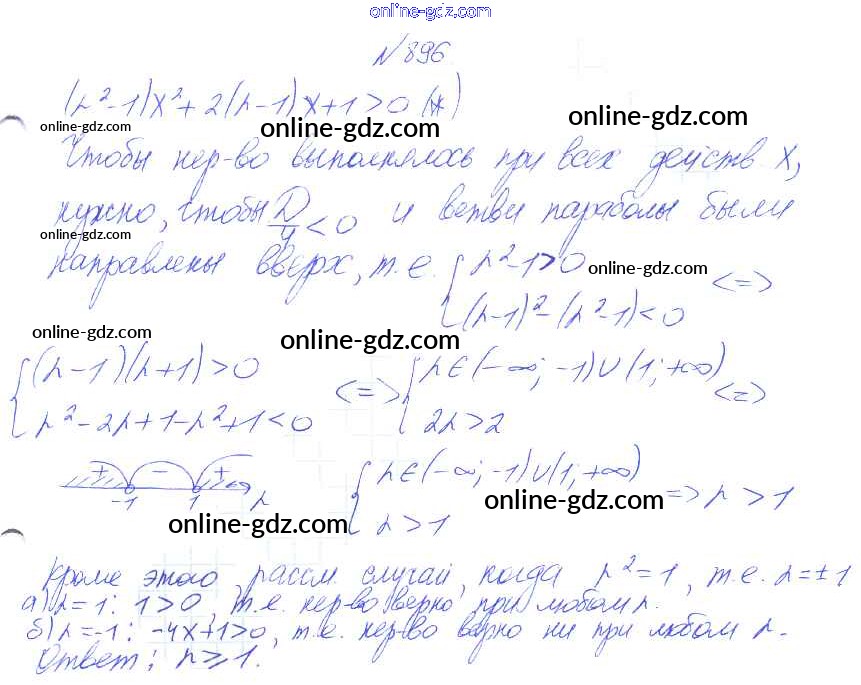 online-gdz.com
N 896.
(r²-1)x²+2(r-1)x+1>0 (*)
online-gdz.com online-gdz.com online-gdz.com
Чтобы нер-во выполнялось при всех действ x,
нужно, чтобы D/4<0 и ветви параболы были
online-gdz.com
направлены вверх, т.е. { r²-1>0 online-gdz.com <=>
(r-1)²-(r²-1)<0
online-gdz.com online-gdz.com
{ (r-1)(r+1)>0 <=> { r∈(-∞;-1)∪(1;+∞) <=>
r²-2r+1-r²+1<0 2r>2
+ - + { r∈(-∞;-1)∪(1;+∞) => r>1
-1 1 r r>1
online-gdz.com online-gdz.com
Кроме этого, рассм. случай, когда r²=1, т.е. r=±1
а) r=1: 1>0, т.е. нер-во верно при любом r.
б) r=-1: -4x+1>0, т.е. нер-во верно ни при любом r.
Ответ: r≥1.